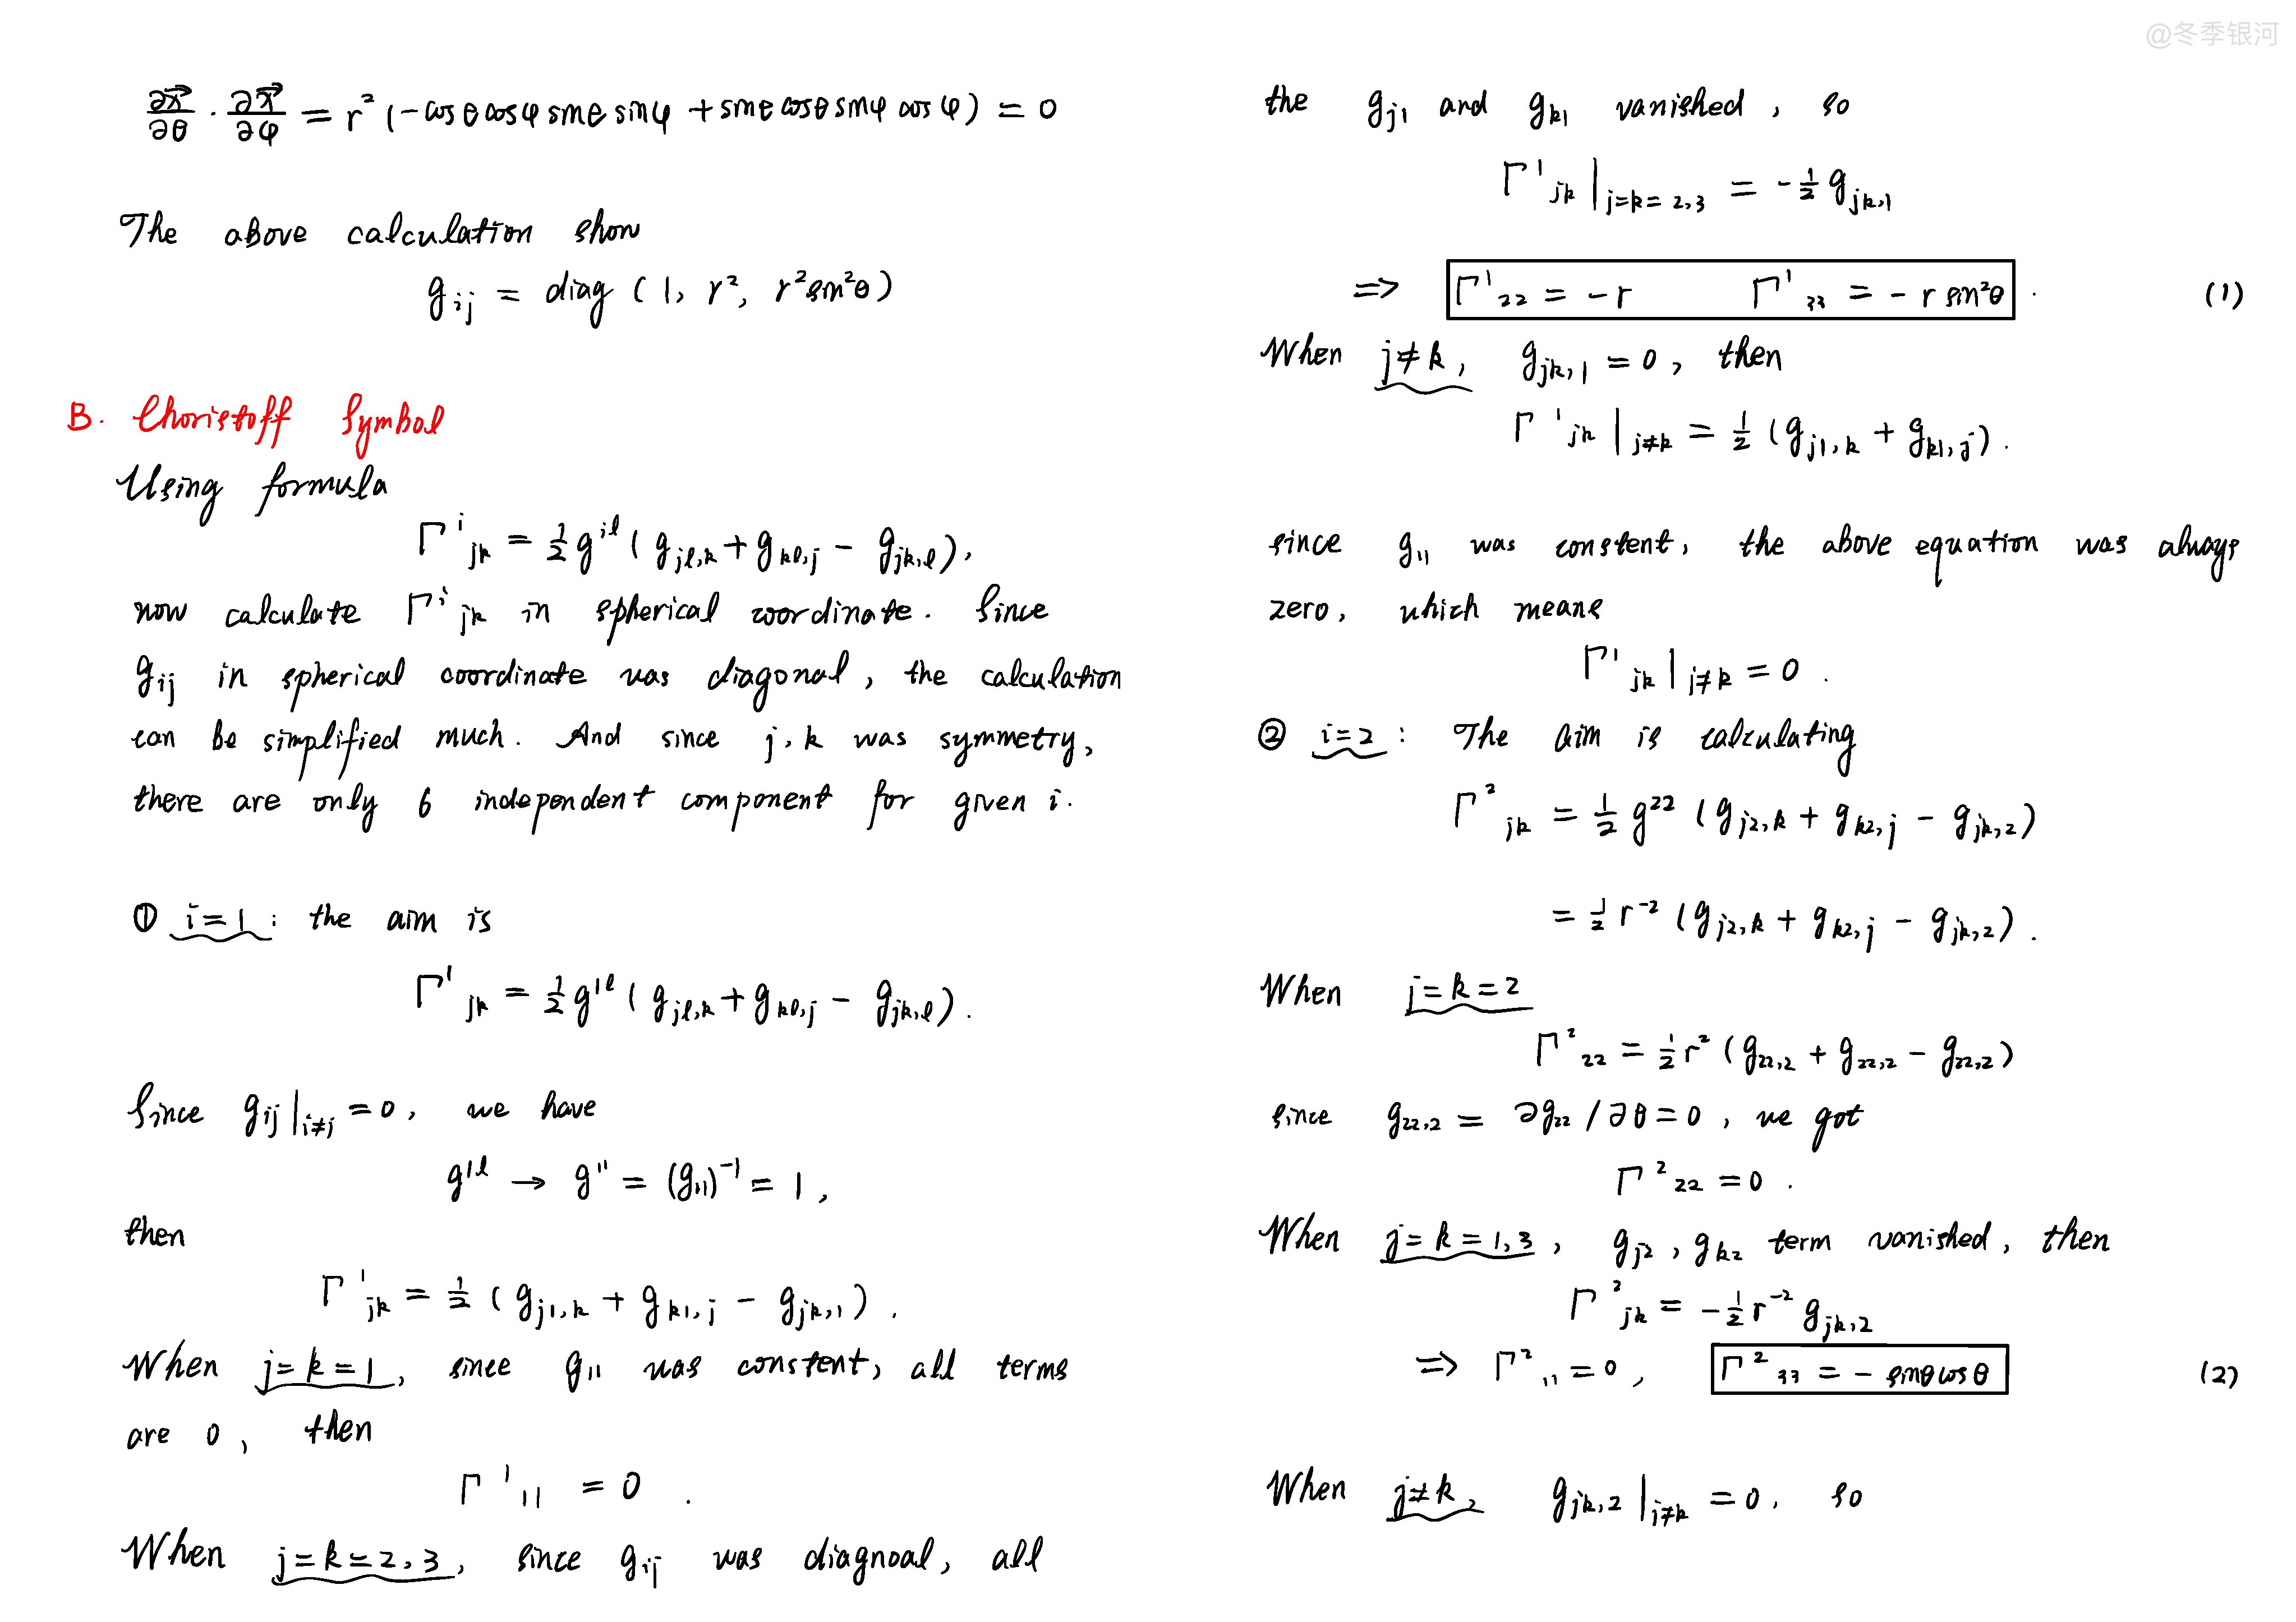 @冬季银河
∂x⃗/∂θ · ∂x⃗/∂φ = r² (-cosθ cosφ sinθ sinφ + sinθ cosθ sinφ cosφ) = 0
The above calculation show
g_{ij} = diag (1, r², r²sin²θ)
B. Choristoff Symbol
Using formula
Γ^i_{jk} = ½ g^{il} (g_{jl,k} + g_{kl,j} - g_{jk,l}),
now calculate Γ^i_{jk} in spherical coordinate. Since
g_{ij} in spherical coordinate was diagonal, the calculation
can be simplified much. And since j,k was symmetry,
there are only 6 independent component for given i.
① i=1: the aim is
Γ^1_{jk} = ½ g^{1l} (g_{jl,k} + g_{kl,j} - g_{jk,l}).
Since g_{ij}|_{i≠j} = 0, we have
g^{1l} → g^{11} = (g_{11})^{-1} = 1,
then
Γ^1_{jk} = ½ (g_{j1,k} + g_{k1,j} - g_{jk,1}).
When j=k=1, since g_{11} was constent, all terms
are 0, then
Γ^1_{11} = 0.
When j=k=2,3, since g_{ij} was diagnoal, all
the g_{j1} and g_{k1} vanished, so
Γ^1_{jk}|_{j=k=2,3} = -½ g_{jk,1}
⇒ Γ^1_{22} = -r Γ^1_{33} = -r sin²θ. (1)
When j≠k, g_{jk,1} = 0, then
Γ^1_{jk}|_{j≠k} = ½ (g_{j1,k} + g_{k1,j}).
since g_{11} was constent, the above equation was always
zero, which means
Γ^1_{jk}|_{j≠k} = 0.
② i=2: The aim is calculating
Γ^2_{jk} = ½ g^{22} (g_{j2,k} + g_{k2,j} - g_{jk,2})
= ½ r^{-2} (g_{j2,k} + g_{k2,j} - g_{jk,2}).
When j=k=2
Γ^2_{22} = ½ r² (g_{22,2} + g_{22,2} - g_{22,2})
since g_{22,2} = ∂g_{22}/∂θ = 0, we got
Γ^2_{22} = 0.
When j=k=1,3, g_{j2}, g_{k2} term vanished, then
Γ^2_{jk} = -½ r^{-2} g_{jk,2}
⇒ Γ^2_{11} = 0, Γ^2_{33} = -sinθcosθ (2)
When j≠k, g_{jk,2}|_{j≠k} = 0, so